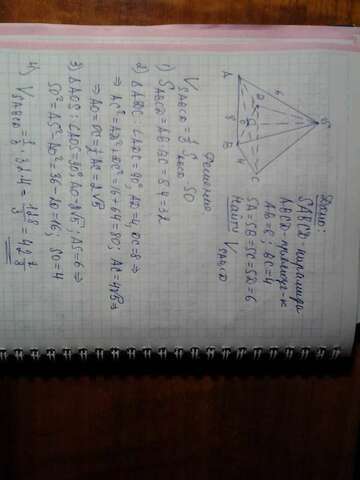 Дано:
SABCD-пирамида
ABCD-прямоуг-к
AB=8; BC=4
SA=SB=SC=SD=6
Найти V SABCD
S
6
D
C
O
4
A
8
B
Решение
V SABCD = 1/3 S ABCD · SO
1) S ABCD = AB·BC = 8·4=32
2) ΔADC: ∠ADC=90°, AD=4, DC=8 ⇒
⇒ AC²=AD²+DC²=16+64=80; AC=4√5 ⇒
⇒ AO=OC=1/2 AC=2√5
3) ΔAOS: ∠AOS=90°, AO=2√5; AS=6 ⇒
SO²=AS²-AO²=36-20=16; SO=4
4) V SABCD = 1/3 · 32·4 = 128/3 = 42 2/3